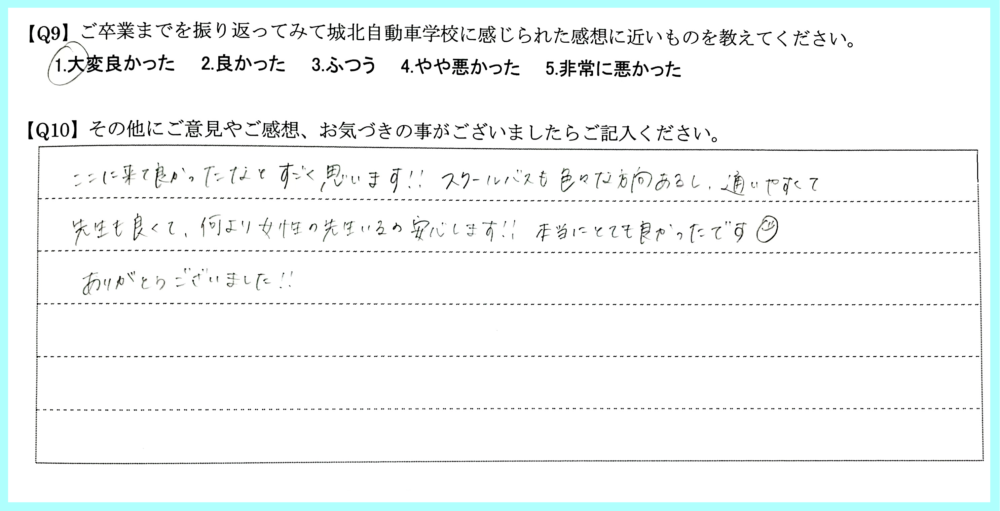 【Q9】ご卒業までを振り返ってみて城北自動車学校に感じられた感想に近いものを教えてください。
1.大変良かった 2.良かった 3.ふつう 4.やや悪かった 5.非常に悪かった
【Q10】その他にご意見やご感想、お気づきの事がございましたらご記入ください。
ここに来て良かったなと すごく思います!! スクールバスも色々な方向あるし、通いやすくて
先生も良くて、何より女性の先生いるの安心します!! 本当にとても良かったです
ありがとうございました!!